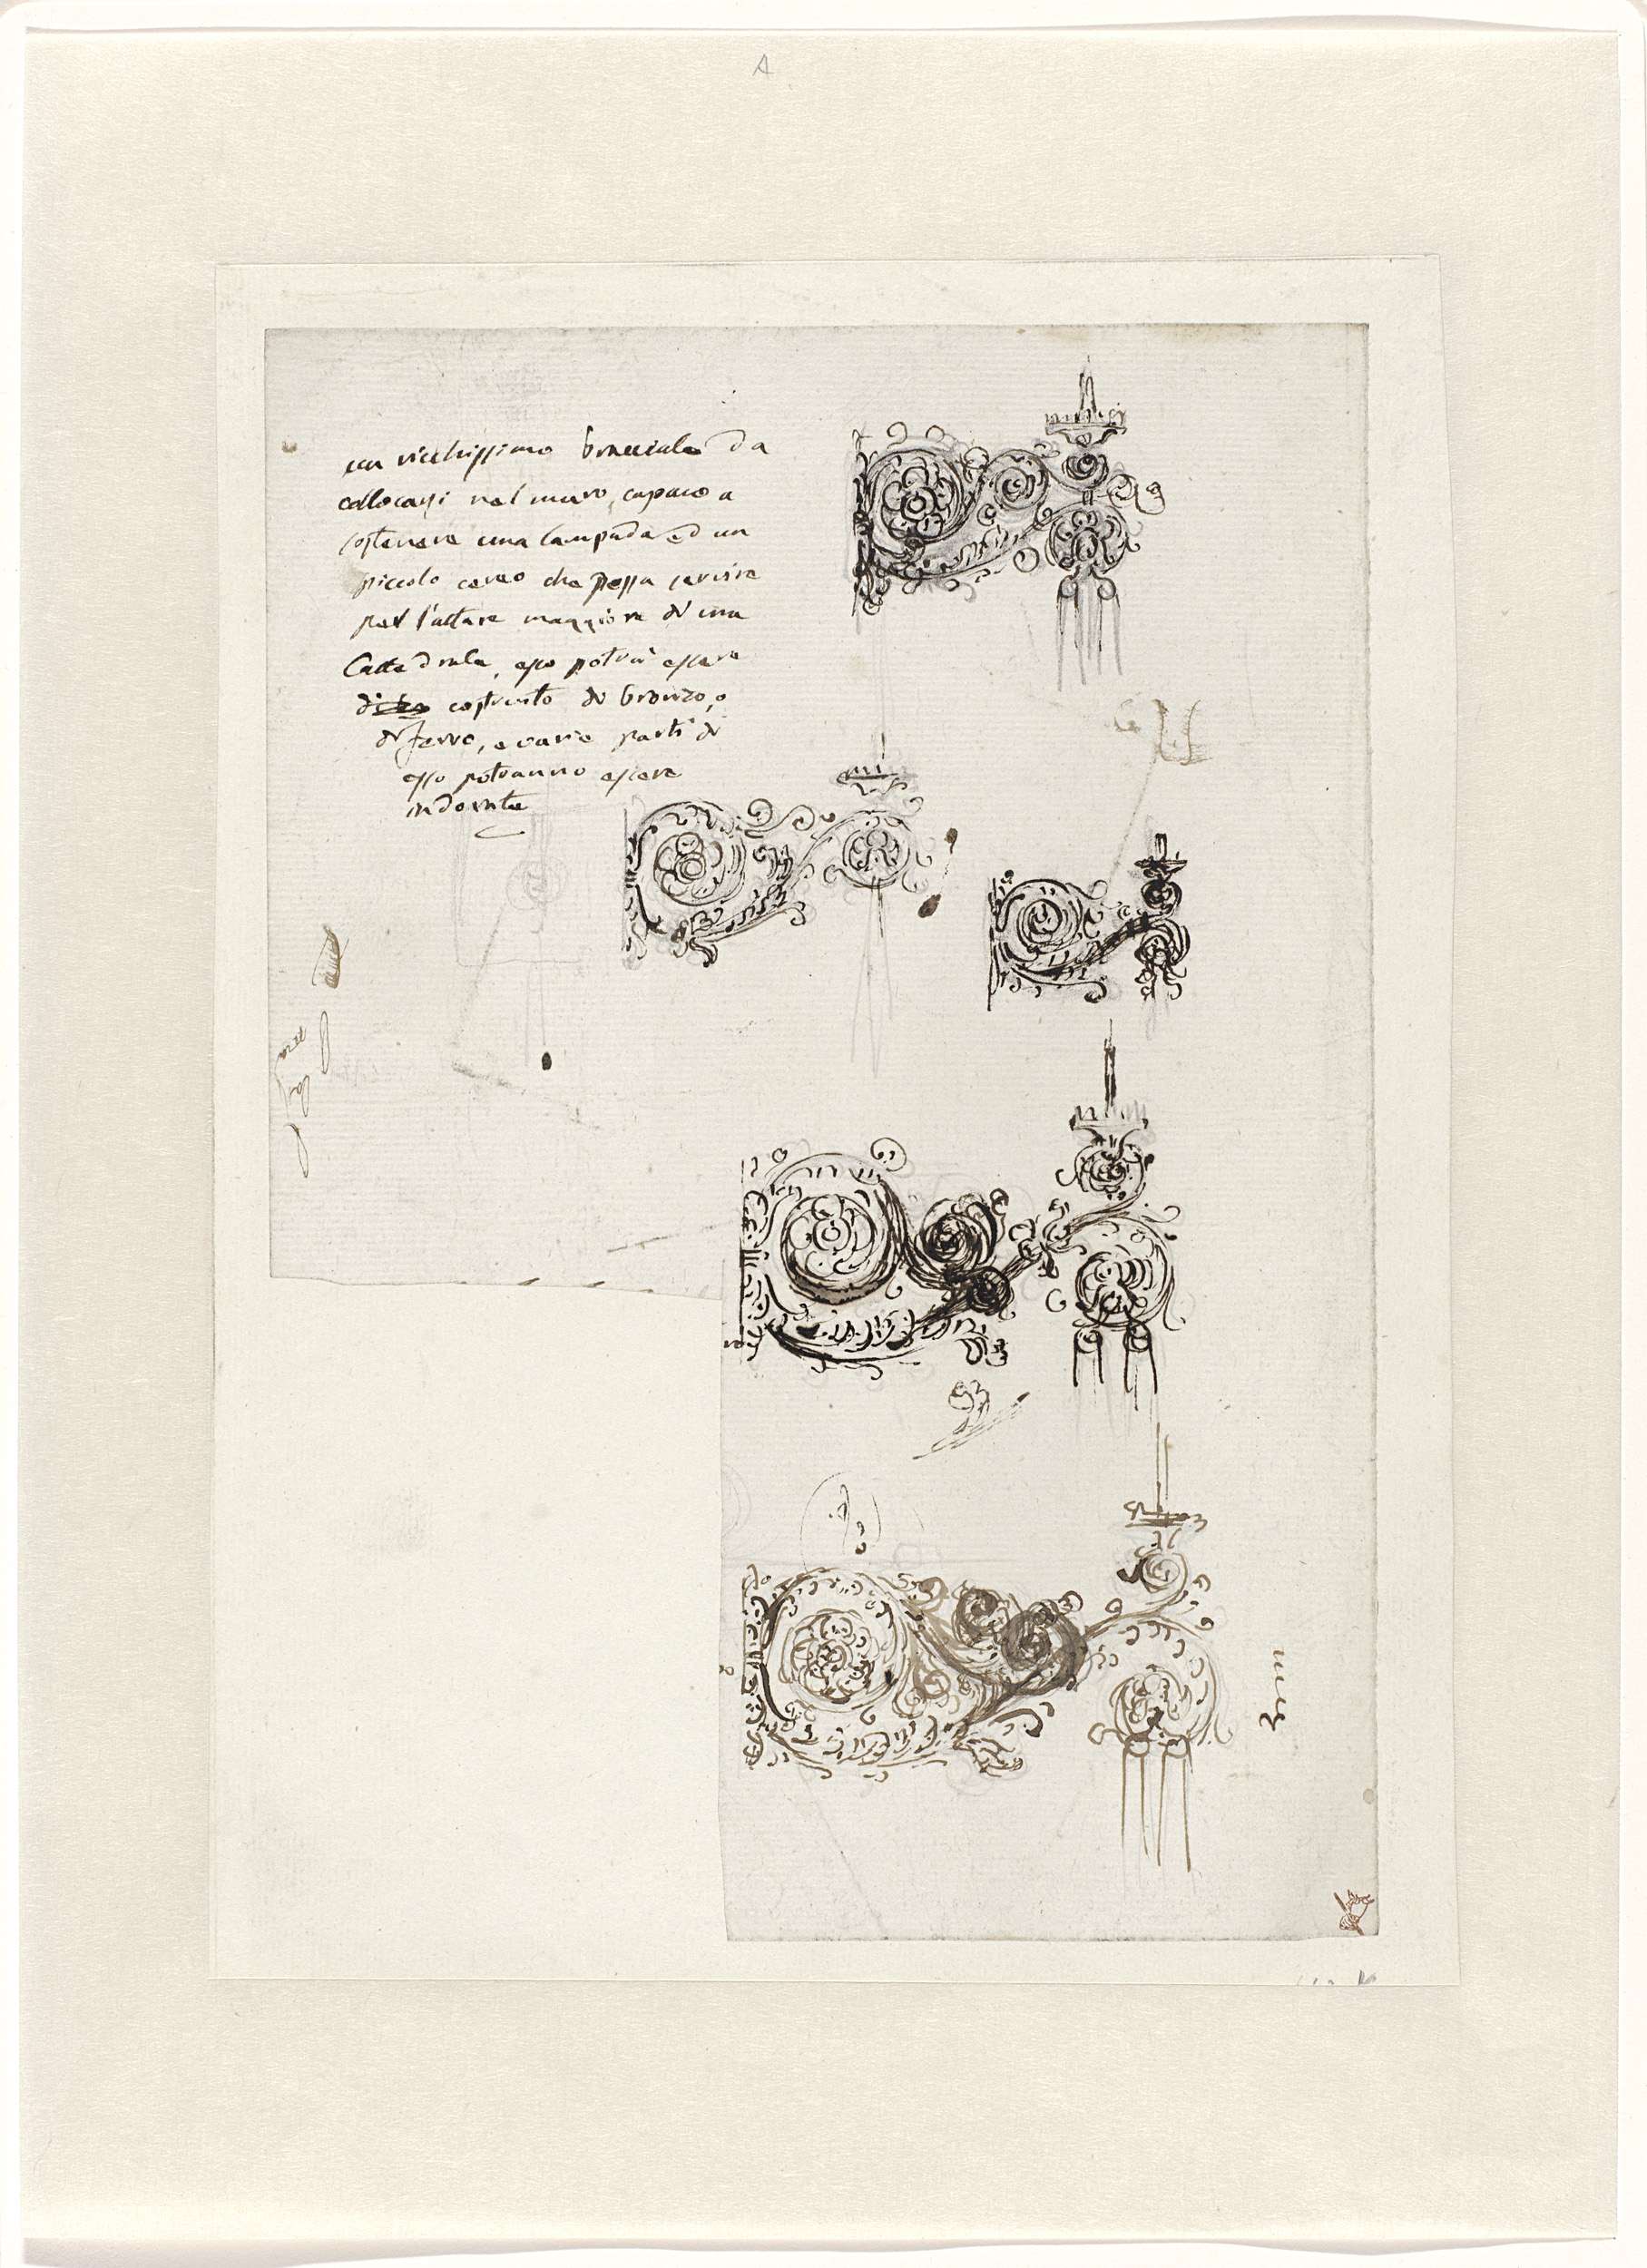 A
un ricchissimo bracciale da
collocarsi nel muro, capace a
sostenere una lampada ed un
piccolo cereo che possa servire
pel l'altare maggiore di una
Cattedrale, esso potrà essere
costruito di bronzo, o
di ferro, e varie parti di
esso potranno essere
indorate